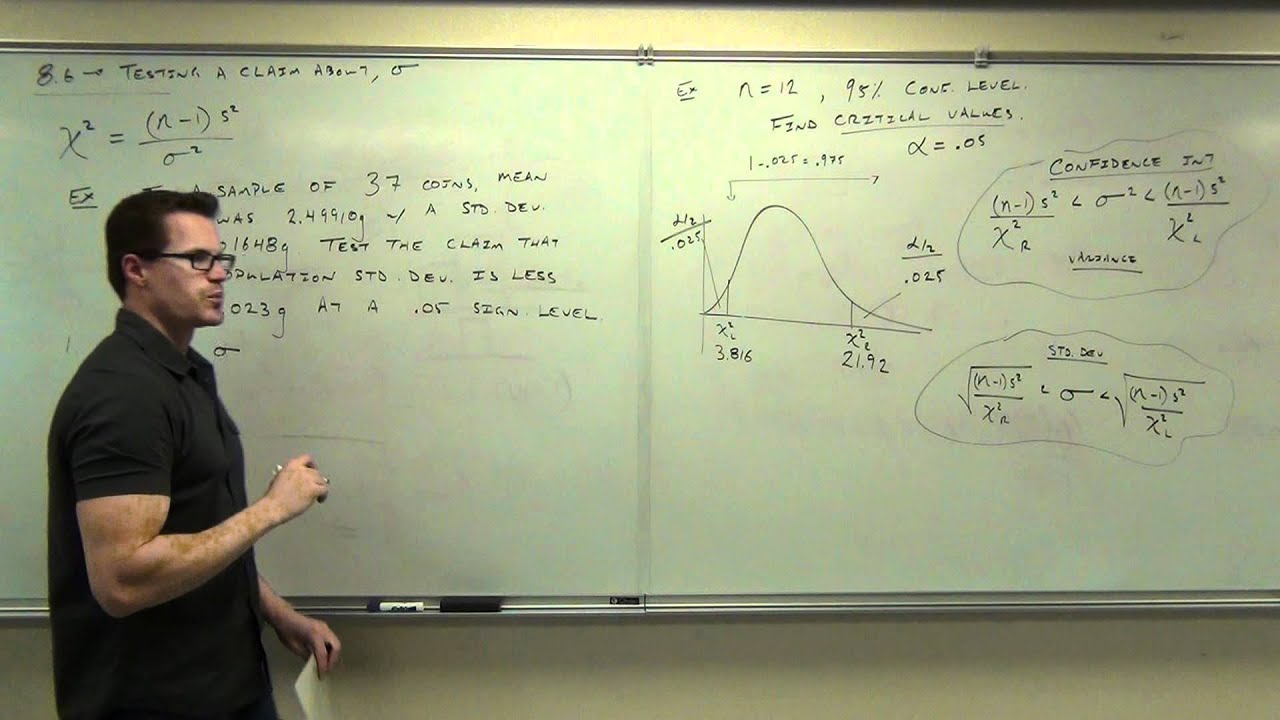 8.6 → TESTING A CLAIM ABOUT, σ
χ² = (n-1) s² / σ²
EX A SAMPLE OF 37 COINS, MEAN
WAS 2.49910g w/ A STD. DEV.
1648g. TEST THE CLAIM THAT
OPULATION STD. DEV. IS LESS
023g AT A .05 SIGN. LEVEL.
σ
EX n=12, 95% CONF. LEVEL.
FIND CRITICAL VALUES.
α = .05
1-.025=.975
α/2
.025
α/2
.025
χ²L
3.816
χ²R
21.92
CONFIDENCE INT
(n-1) s² / χ²R < σ² < (n-1) s² / χ²L
VARIANCE
STD. DEV
√((n-1) s² / χ²R) < σ < √((n-1) s² / χ²L)